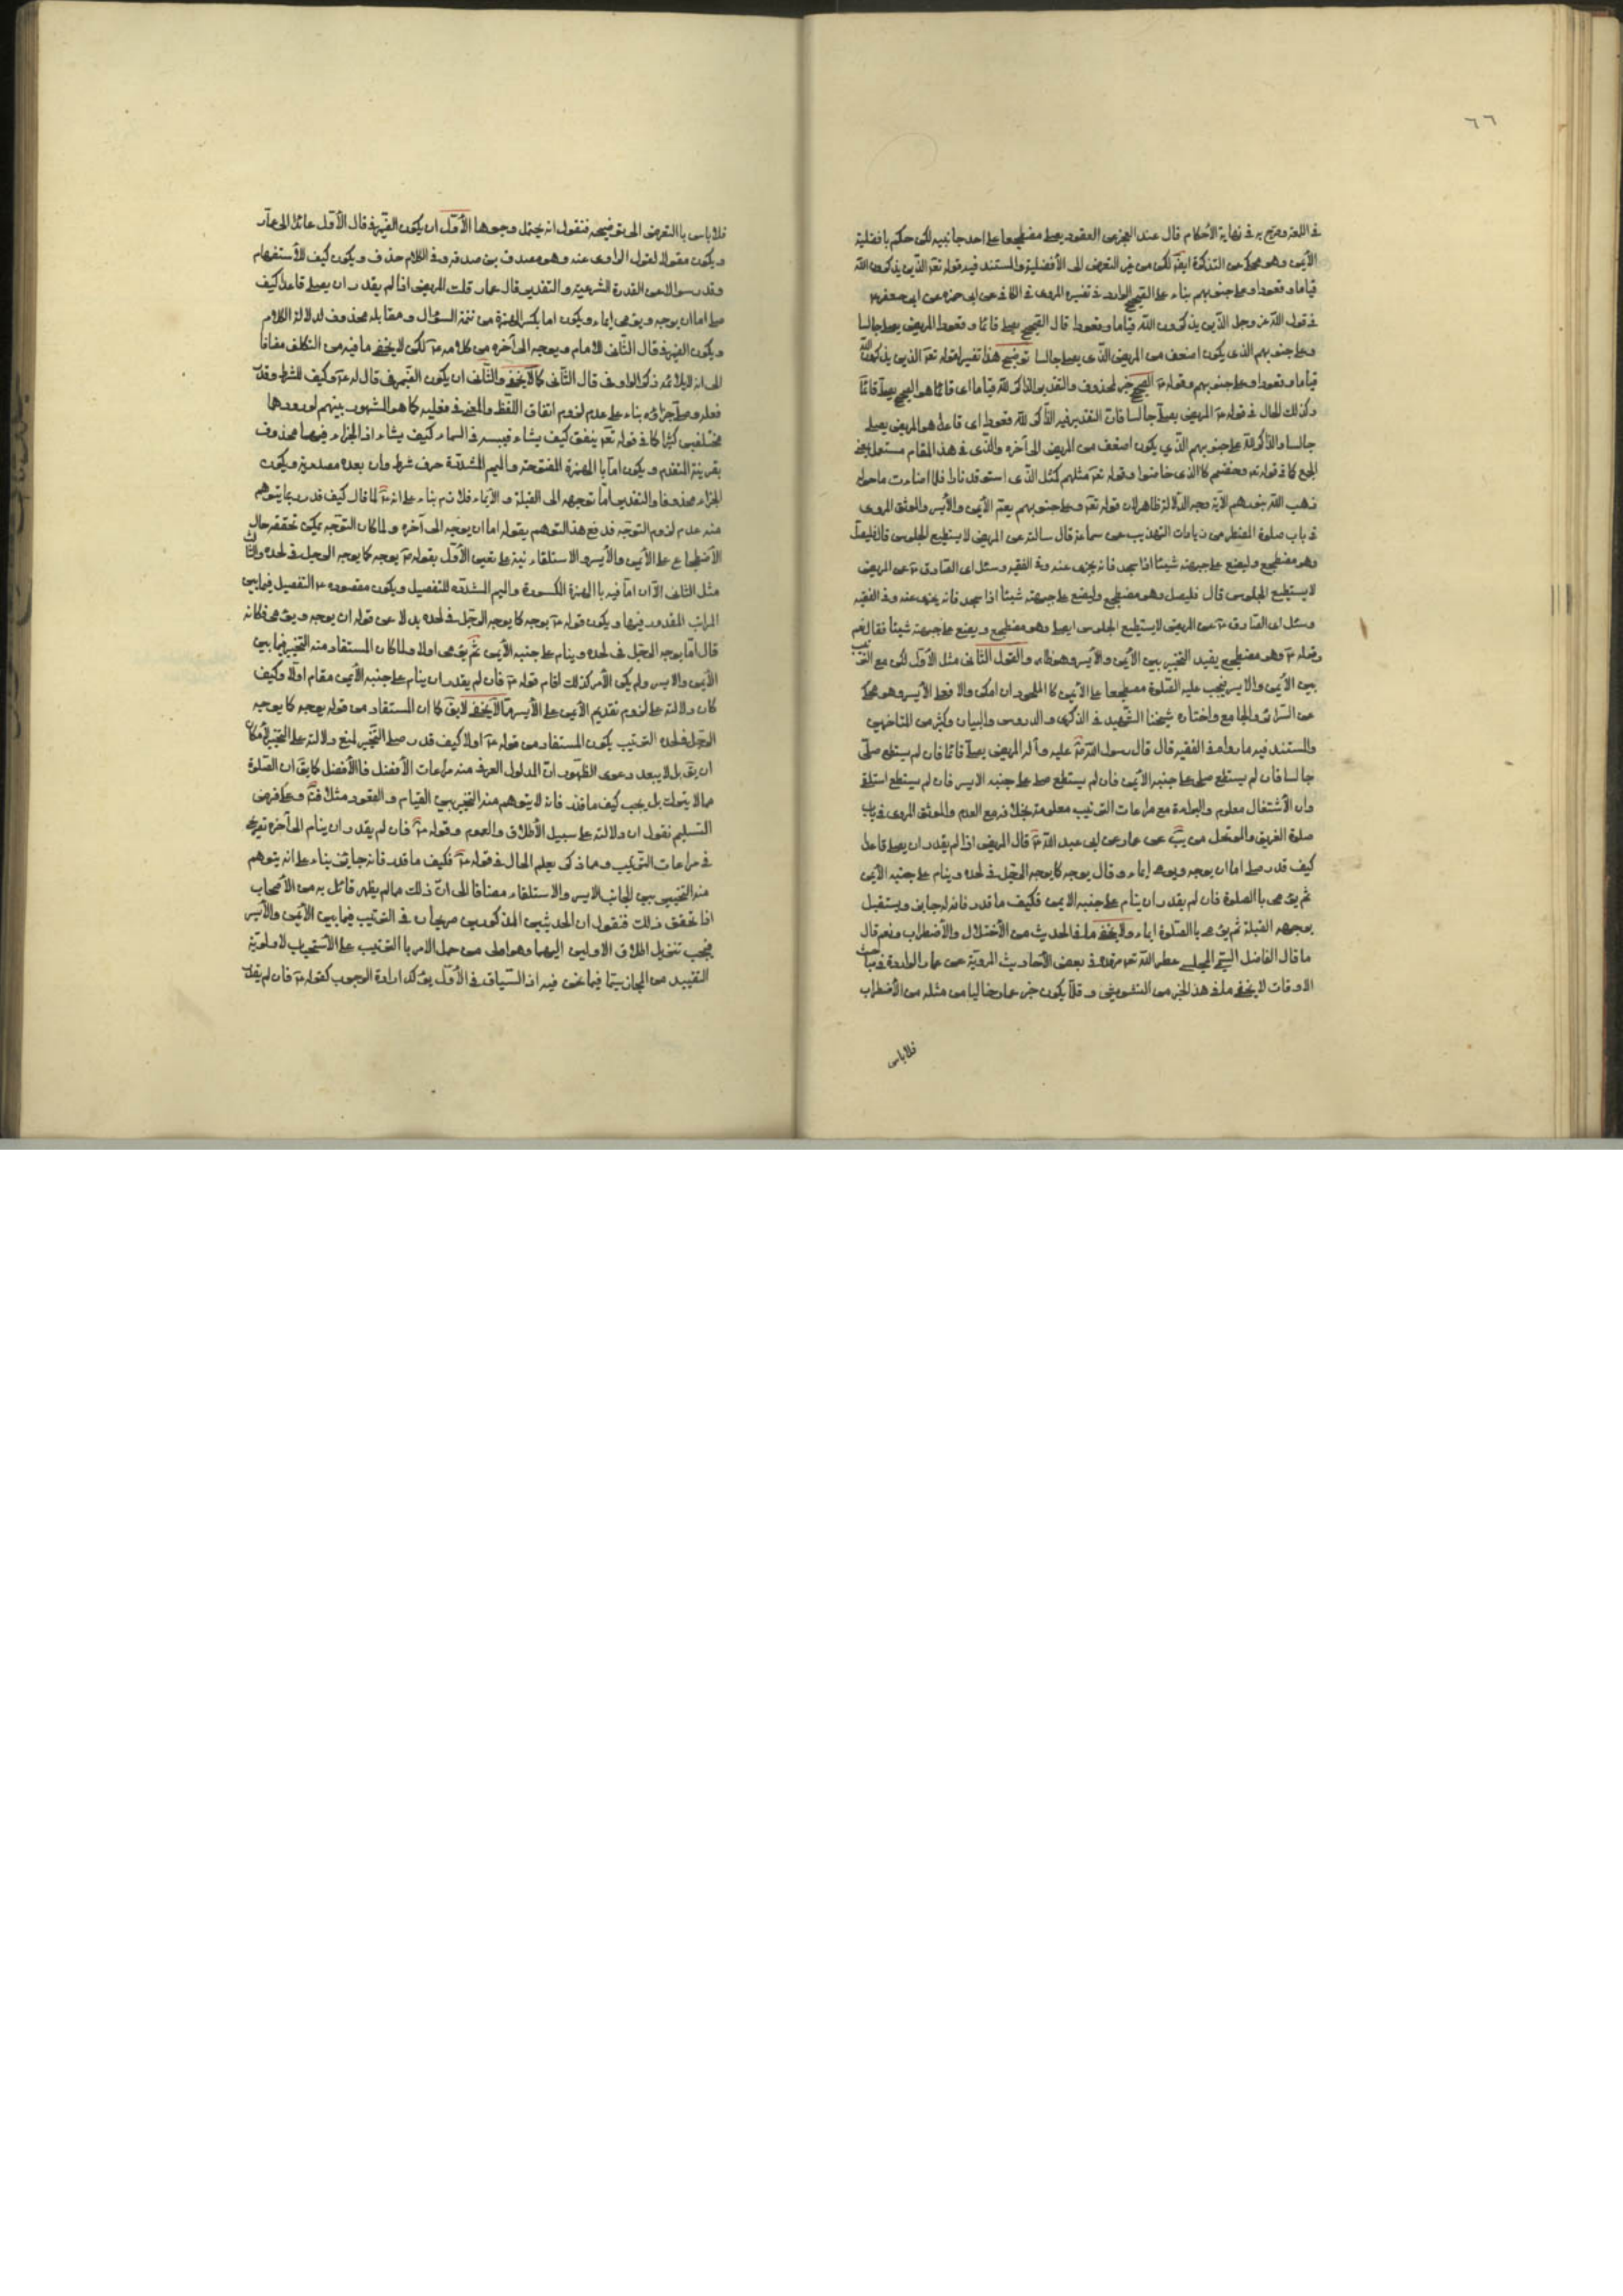 ٦٦
في اللمعة وصرح به في نهاية الأحكام قال عند العجز عن القعود يصلي مضطجعا على احد جانبيه لكن حكم بافضلية
الأيمن وهو محكي عن التذكرة ايضا لكن من غير التعرض الى الأفضلية والمستند فيه قوله تعم الذين يذكرون الله
قياما وقعودا وعلى جنوبهم بناء على الصحيح الوارد في تفسيره المروي في الكافي عن ابي حمزة عن ابي جعفر ع
في قول الله عز وجل الذين يذكرون الله قياما وقعودا قال الصحيح يصلي قائما وقعودا المريض يصلي جالسا
وعلى جنوبهم الذي يكون اضعف من المريض الذي يصلي جالسا توضيح هذا تفسير لقوله تعم الذين يذكرون الله
قياما وقعودا وعلى جنوبهم وقوله ع الصحيح خبر لمحذوف والتقدير الذاكر لله قياما اي قائما هو الصحيح يصلي قائما
وكذلك الحال في قوله ع المريض يصلي جالسا فان التقدير فيه الذاكر لله قعودا اي قاعدا هو المريض يصلي
جالسا والذاكر لله على جنوبهم الذي يكون اضعف من المريض الى آخره والذي في هذا المقام مستعمل بمعنى
الجمع كما في قوله تعم وخضتم كالذي خاضوا وقوله تعم مثلهم كمثل الذي استوقد نارا فلما اضاءت ما حوله
ذهب الله بنورهم الآية وجه الدلالة ظاهر لان قوله تعم وعلى جنوبهم يعم الأيمن والأيسر والموثق المروي
في باب صلوة المضطر من زيادات التهذيب عن سماعة قال سالته عن المريض لا يستطيع الجلوس قال فليصل
وهو مضطجع وليضع على جبهته شيئا اذا سجد فانه يجزي عنه وفي الفقيه وسئل اي الصادق ع عن المريض
لا يستطيع الجلوس قال فليصل وهو مضطجع وليضع على جبهته شيئا اذا سجد فانه يجزي عنه وفي الفقيه
وسئل اي الصادق ع عن المريض لا يستطيع الجلوس ايصلي وهو مضطجع ويضع على جبهته شيئا فقال نعم
وقوله ع وهو مضطجع يفيد التخيير بين الأيمن والأيسر وهو ظاهر والقول الثاني مثل الأول لكن مع الترتيب
بين الأيمن والايسر فيجب عليه الصلوة مضطجعا على الأيمن كالملحود ان امكن والا فعلى الأيسر وهو محكي
عن السرائر والجامع واختاره شيخنا الشهيد في الذكرى والدروس والبيان وكثير من المتاخرين
والمستند فيه ما رواه في الفقيه قال قال رسول الله صلى الله عليه وآله المريض يصلي قائما فان لم يستطع صلى
جالسا فان لم يستطع صلى على جنبه الأيمن فان لم يستطع صلى على جنبه الايسر فان لم يستطع استلقى
وان الأشتغال معلوم والبراءة مع مراعات الترتيب معلومة بخلافه مع العدم والموثق المروي في باب
صلوة الغريق والمتوحل من يب عن عمار عن ابي عبد الله ع قال المريض اذا لم يقدر ان يصلي قاعدا
كيف قدر صلى اما ان يوجه ويومي إيماء وقال يوجه كما يوجه الرجل في لحده وينام على جنبه الأيمن
ثم يومي بالصلوة فان لم يقدر ان ينام على جنبه الايمن فكيف ما قدر فانه له جايز ويستقبل
بوجهه القبلة ثم يومي بالصلوة ايماء ولا يخفى ما في الحديث من الأختلال والأضطراب ونعم قال
ما قال الفاضل التقي المجلسي عطر الله تعم مرقده في بعض الأحاديث المروية عن عمار الواردة في مباحث
الاوقات لا يخفى ما في هذا الخبر من التشويش وقلما يكون خبر عمار خاليا من مثله من الأضطراب
فلاباس
فلاباس بالتعرض الى توضيحه فنقول انه يحتمل وجوها الأول ان يكون الضمير في قال الأول عائدا الى عمار
ويكون مقولا لقول الراوي عنه وهو مصدق بن صدقة وفي الكلام حذف ويكون كيف للأستفهام
وقدر سوالا عن القدرة الشرعية والتقدير قال عمار قلت المريض اذا لم يقدر ان يصلي قاعدا كيف
صلى اما ان يوجه ويومي إيماء ويكون اما بكسر الهمزة من تتمة السؤال ومقابله محذوف لدلالة الكلام
ويكون الضمير في قال الثاني للامام ويوجه الى آخره من كلامه ع لكن لا يخفى ما فيه من التكلف مضافا
الى انه لا يلائمه ذكر الواو في قال الثاني كما لا يخفى والثاني ان يكون الضمير في قال له ع وكيف للشرط وقدر
فعله وصلى جزاؤه بناء على عدم لزوم اتفاق اللفظ والمعنى في فعليه كما هو المشهور بينهم لورودها
مختلفين كثيرا كما في قوله تعم ينفق كيف يشاء فيبسطه في السماء كيف يشاء اذ الجزاء فيهما محذوف
بقرينة التقدم ويكون اما بالهمزة المفتوحة والميم المشددة حرف شرط وان بعده مصدرية ويكون
الجزاء محذوفا والتقدير اما توجهه الى القبلة والايماء فلازم بناء على انه ع لما قال كيف قدر ربما يتوهم
منه عدم لزوم التوجه فدفع هذا التوهم بقوله اما ان يوجه الى آخره ولما كان التوجه يمكن تحققه حال
الأضطجاع على الأيمن والأيسر والاستلقاء نبه على تعيين الأول بقوله ع يوجه كما يوجه الرجل في لحده والثالث
مثل الثاني الا ان اما فيه بالهمزة المكسورة والميم المشددة للتفصيل ويكون مقصوده ع التفصيل فيما بين
المراتب المقدور فيها ويكون قوله ع يوجه كما يوجه الرجل في لحده بدلا عن قوله ان يوجه ويومي فكانه
قال اما يوجه الرجل في لحده وينام على جنبه الأيمن ثم يومي اولا ولما كان المستفاد منه التخيير فيما بين
الأيمن والايسر ولم يكن الأمر كذلك اقام قوله ع فان لم يقدر ان ينام على جنبه الأيمن مقام اولا وكيف
كان دلالته على لزوم تقديم الأيمن على الأيسر مما لا يخفى لا يقال كما ان المستفاد من قوله يوجه كما يوجه
الرجل في لحده الترتيب يكون المستفاد من قوله ع اولا كيف قدر صلى التخيير لمنع دلالته على التخيير لأمكان
ان يقال بل لا يبعد دعوى الظهور ان المدلول العرفي منه مراعات الأفضل فالأفضل كما يقال ان الصلوة
مما لا يترك بل يجب كيف ما قدر فانه لا يتوهم منه التخيير بين القيام والقعود مثلا فتم وعلى فرض
التسليم نقول ان دلالته على سبيل الأطلاق والعموم وقوله ع فان لم يقدر ان ينام الى آخره تصريح
في مراعات الترتيب ومما ذكر يعلم الحال في قوله ع فكيف ما قدر فانه جايز بناء على انه يتوهم
منه التخيير بين الجانب الايسر والاستلقاء مضافا الى ان ذلك مما لم يظهر قائل به من الأصحاب
اذا تحقق ذلك فنقول ان الحديثين المذكورين صريحان في الترتيب فيما بين الأيمن والأيسر
فيجب تنزيل اطلاق الاولين اليهما وهو اولى من حمل الامر بالترتيب على الأستحباب لاولوية
التقييد من المجاز سيما فيما نحن فيه اذ السياق في الأول يؤكد ارادة الوجوب كقوله ع فان لم يقدر